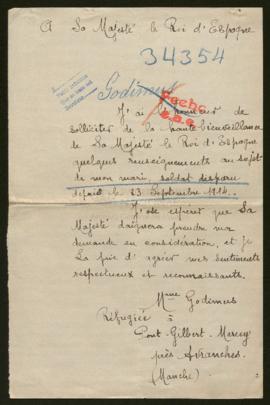 A Sa Majesté le Roi d'Espagne
34354
Godimus
J'ai l'honneur de
solliciter de la haute bienveillance
de Sa Majesté le Roi d'Espagne
quelques renseignements au sujet
de mon mari, soldat disparu
depuis le 23 Septembre 1914.
J'ose espérer que Sa
Majesté daignera prendre ma
demande en considération, et je
La prie d'agréer mes sentiments
respectueux et reconnaissants.
Mme Godimus
Réfugiée à
Pont-Gilbert-Marcey
près Avranches
(Manche)